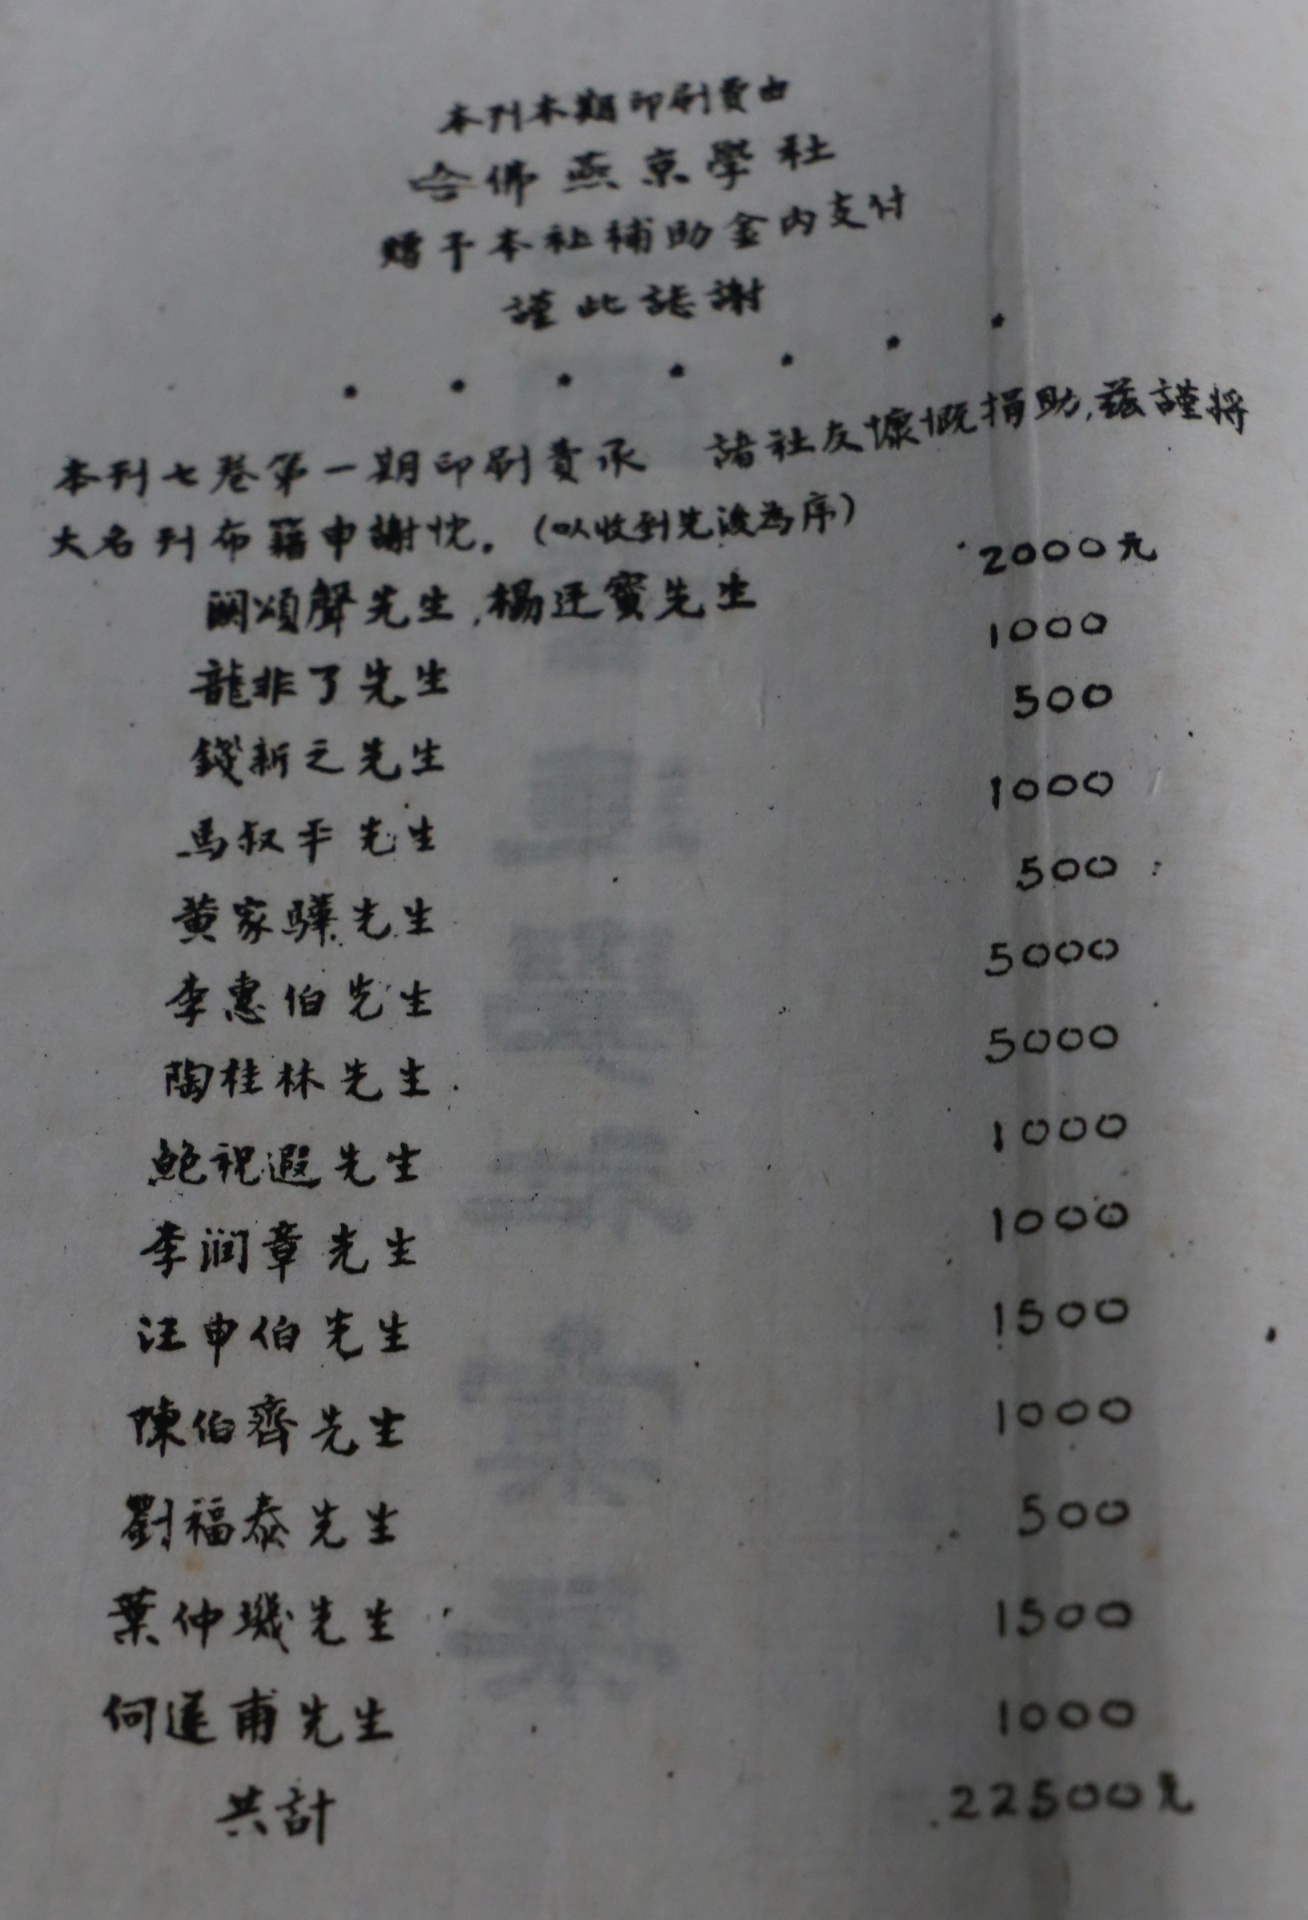 本刊本期印刷費由
合佛燕京學社
贈予本社補助金內支付
謹此誌謝
本刊七卷第一期印刷費承 諸社友慷慨捐助,茲謹將
大名列布籍申謝忱。(以收到先後為序)
關頌聲先生,楊廷寶先生 2000元
龍非了先生 1000
錢新之先生 500
馬叔平先生 1000
黃家驊先生 500
李惠伯先生 5000
陶桂林先生 5000
鮑祝遐先生 1000
李潤章先生 1000
汪申伯先生 1500
陳伯齊先生 1000
劉福泰先生 500
葉仲璣先生 1500
何遂甫先生 1000
共計 22500元